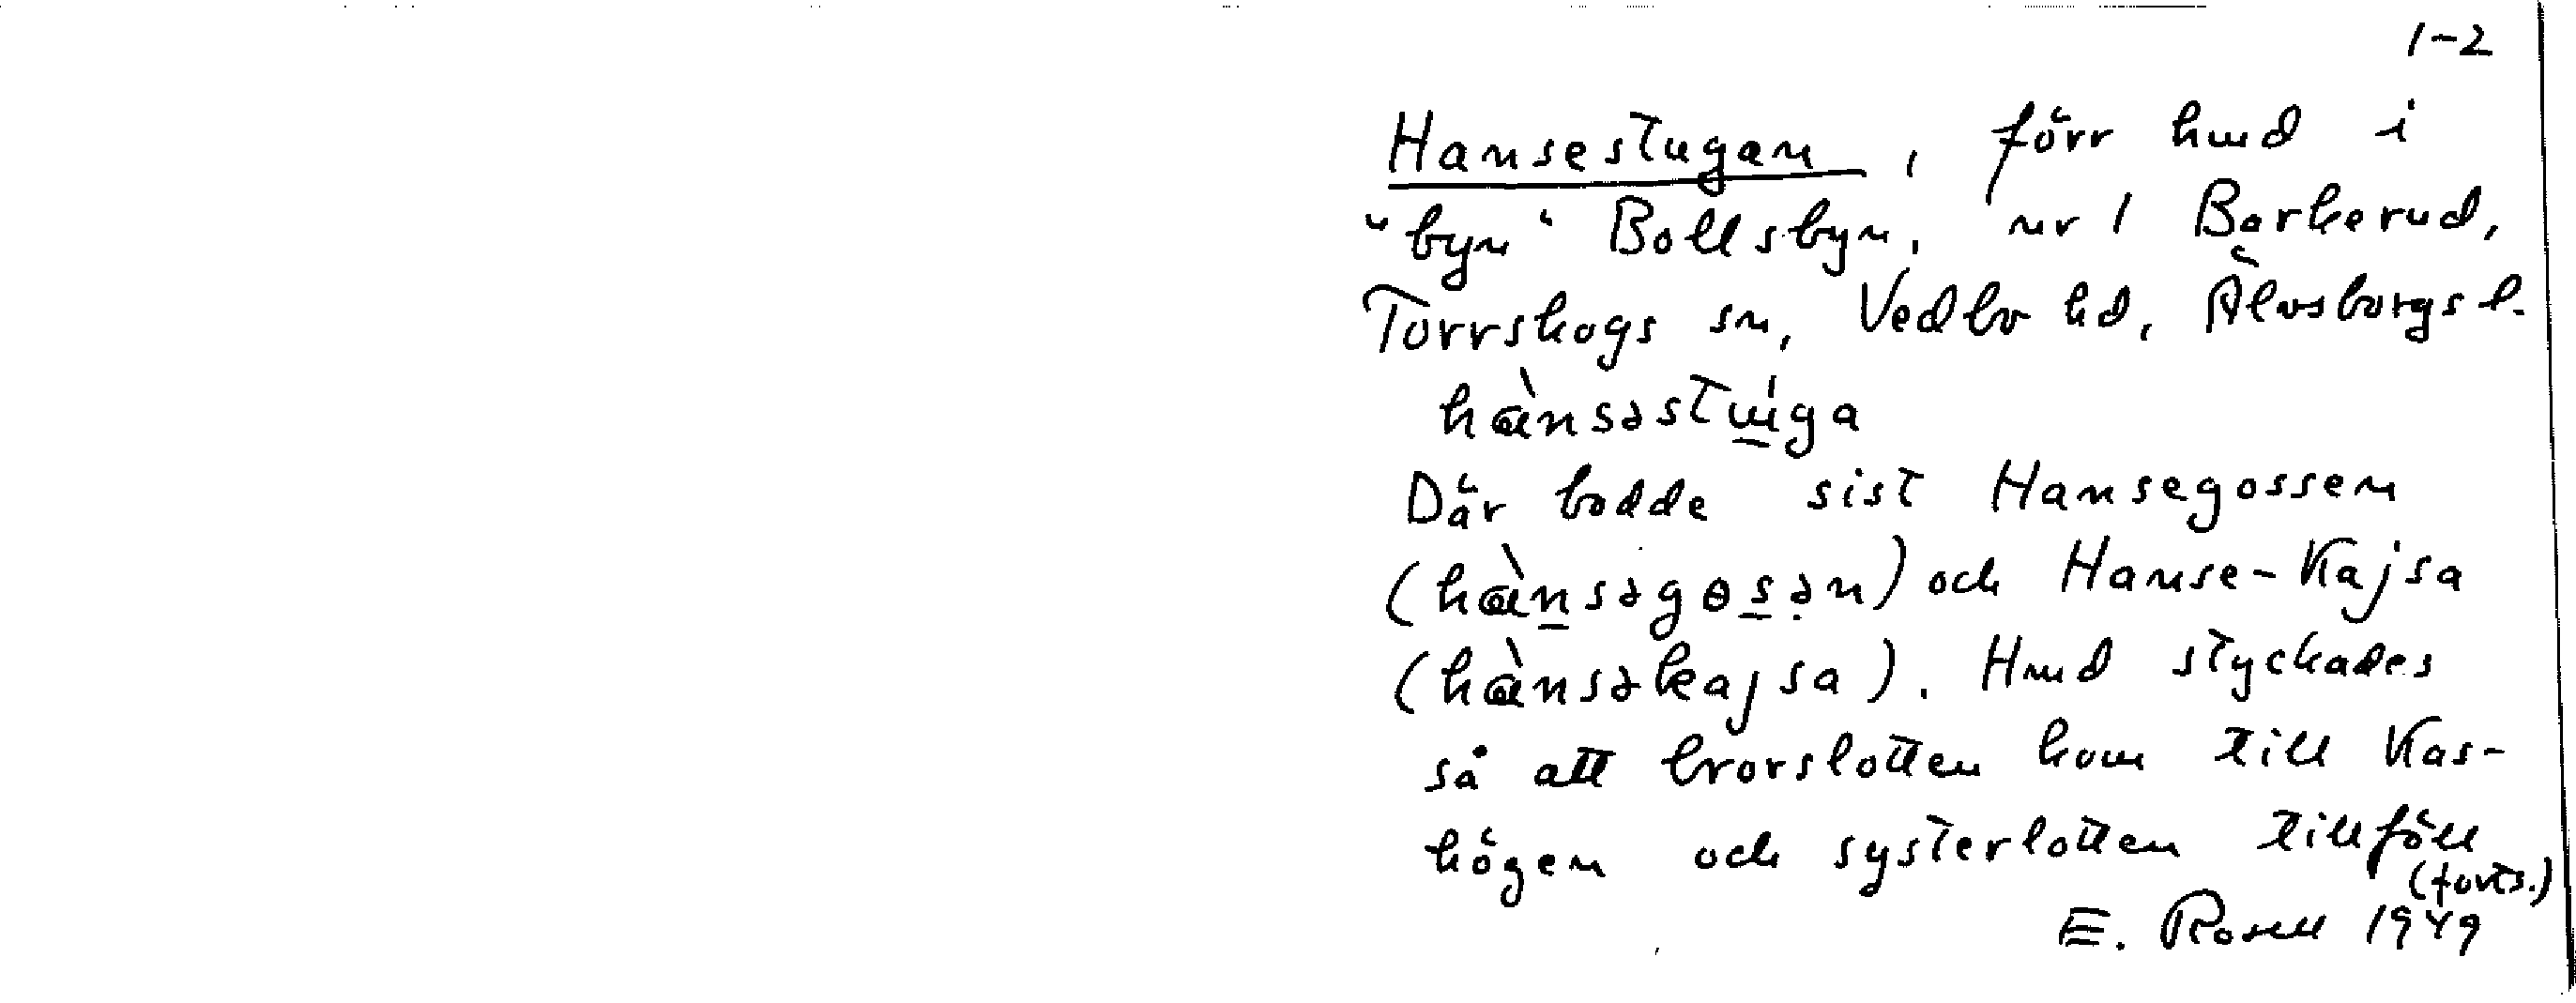 1-2
Hansestugan, förr hmd i
"byn" Bollsbyn, nr 1 Bärkerud,
Torrskogs sn, Vedbo hd, Älvsborgs l.
hànsəstɯ̱́ga
Där bodde sist Hansegossen
(hàṉsəgɵs̱ə̣n) och Hanse-Kajsa
(hànsəkajsa). Hmd styckades
så att brorslotten kom till Kas-
högen och systerlotten tillföll
(forts.)
E. Rosell 1949